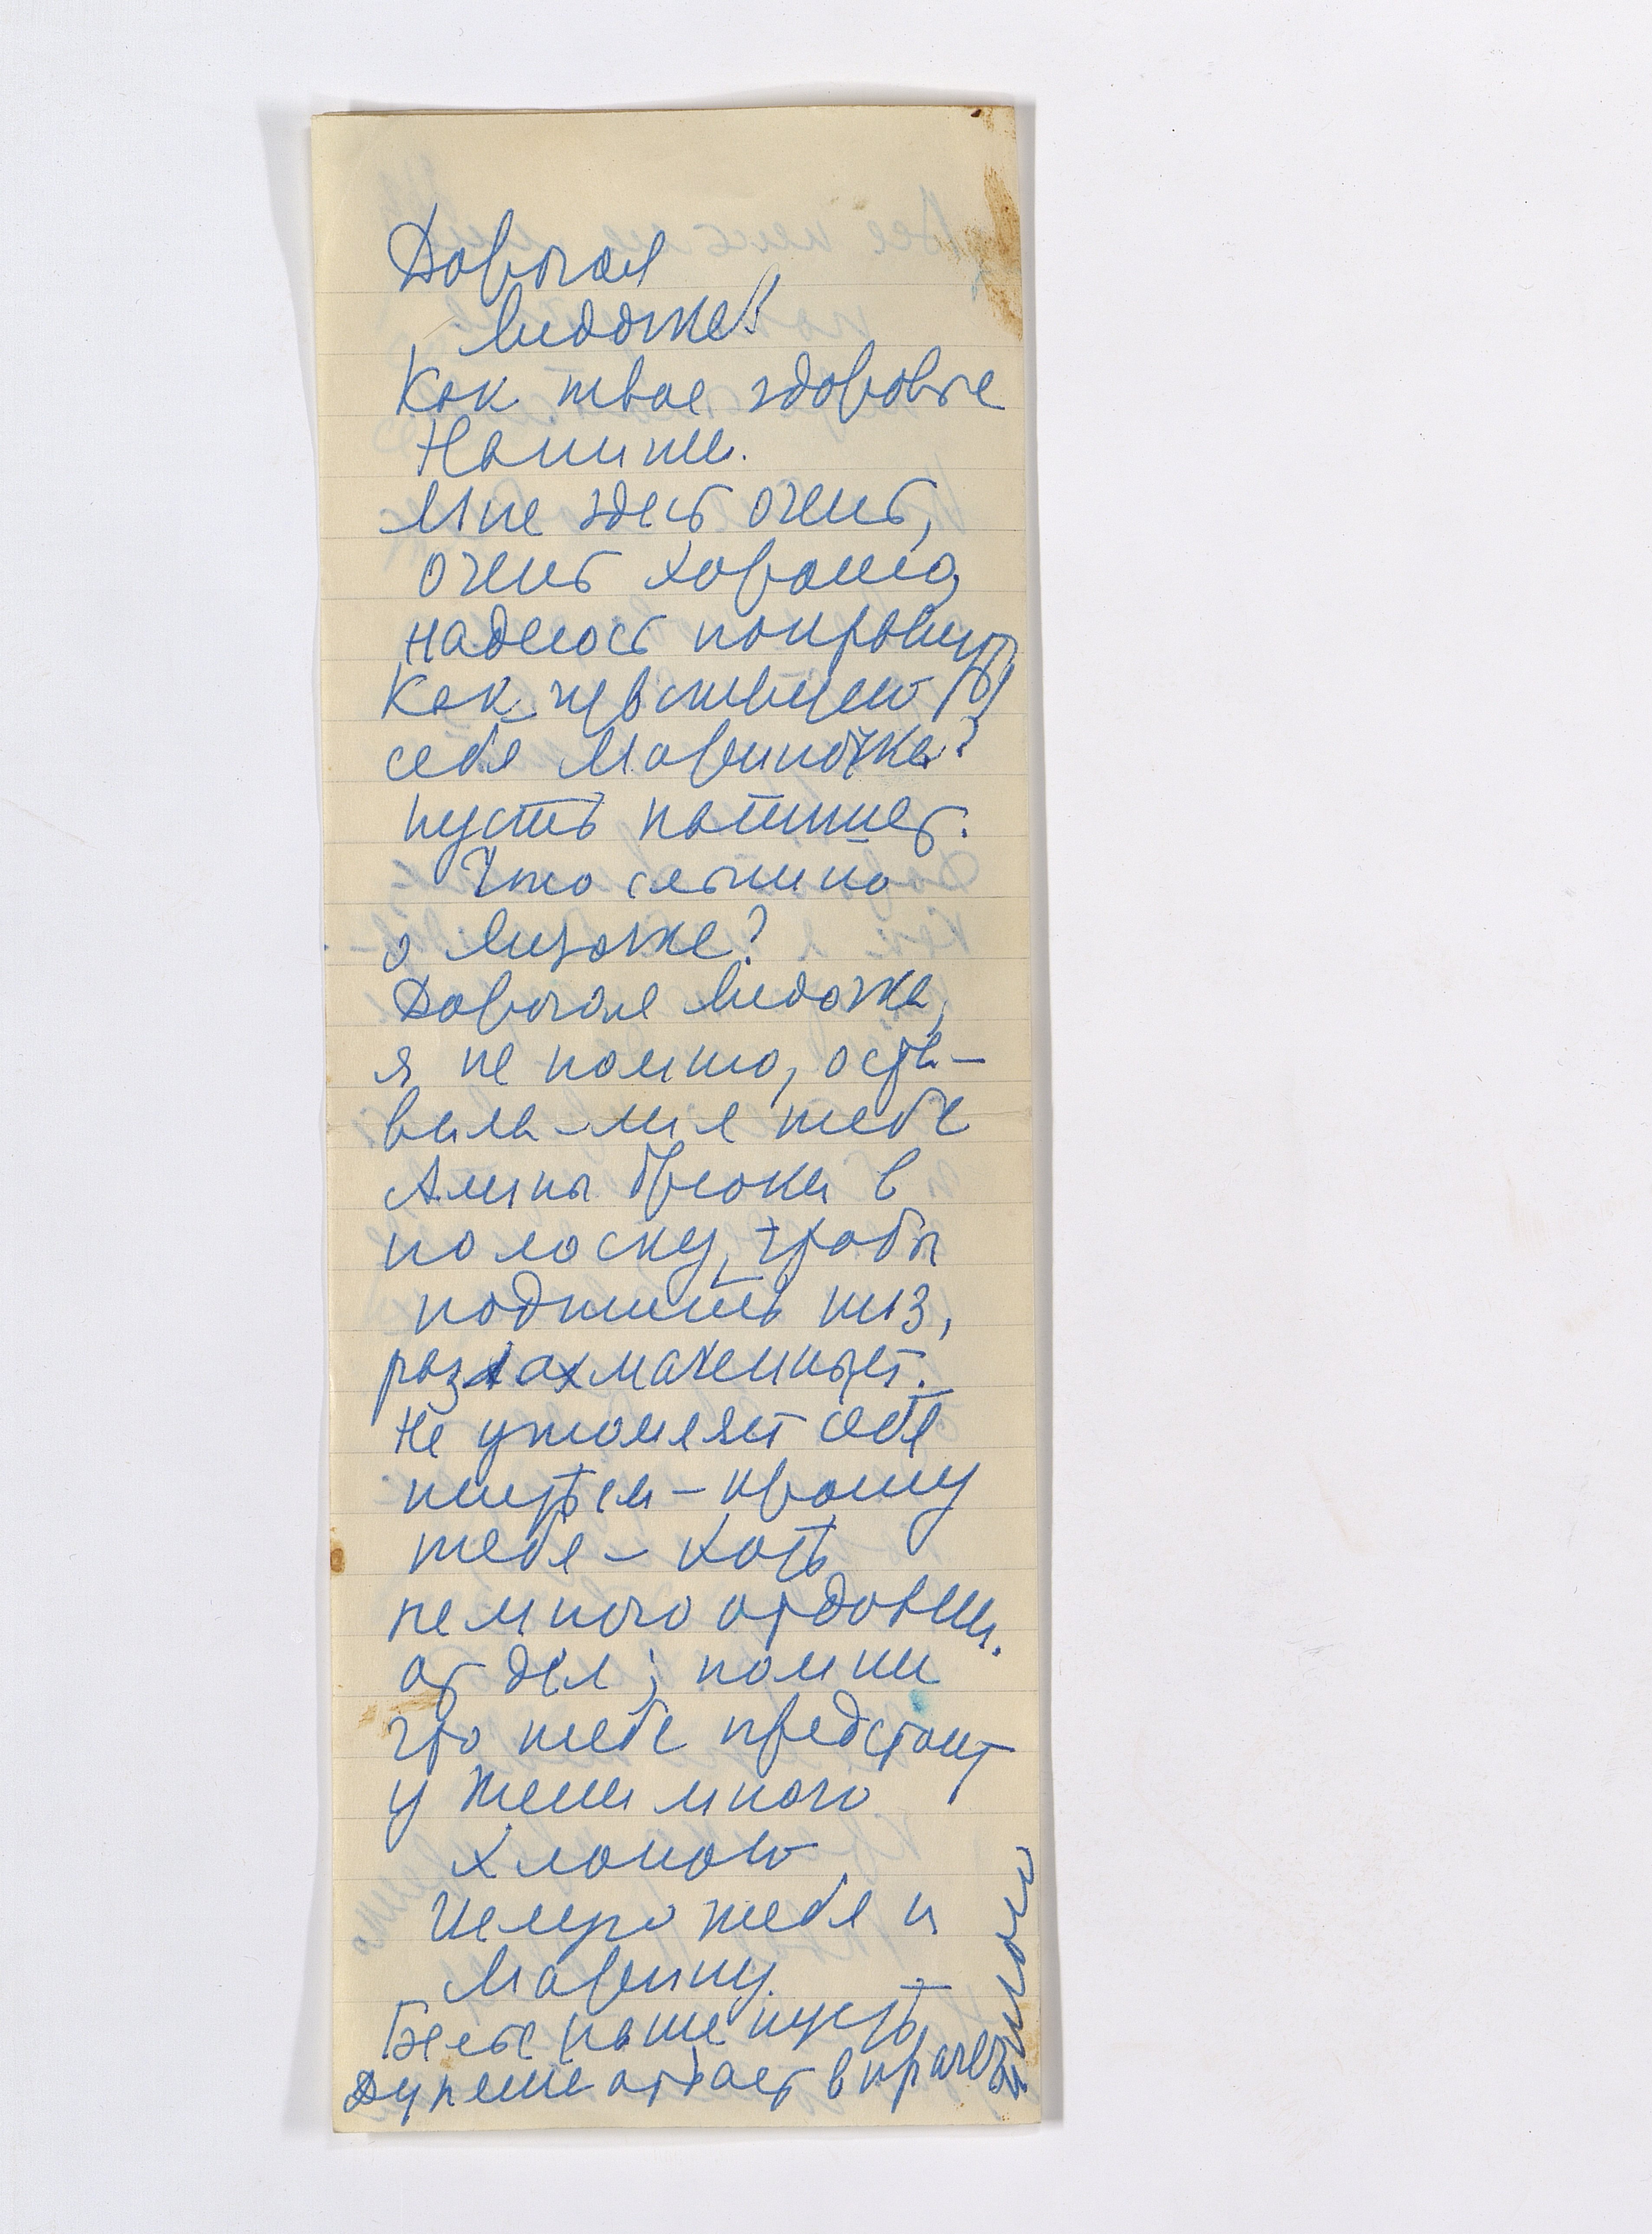 Дорогая
Лидочка!
Как твое здоровье
Напиши.
Мне здесь очень,
очень хорошо,
надеюсь поправлюсь
Как чувствует
себя Мариночка?
пусть напишет.
Что слышно
о Лизочке?
Дорогая Лидочка,
я не помню, оста-
вила-ли я тебе
Алины брюки в
полоску, чтобы
подшить низ,
разлахмаченный.
Не утомляй себя
шитьем – прошу
тебя – хоть
немного отдохни.
от дел; помни
что тебе предстоит
у Жени много
хлопот
Целую тебя и
Марину.
Белье наше пусть
Дуняше отдает в прачечную